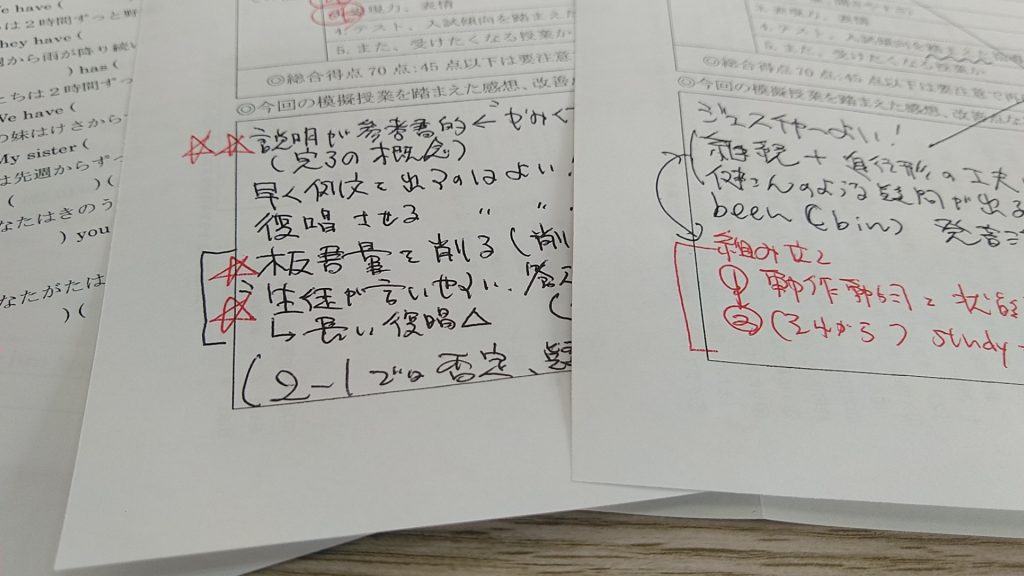 We have (
は２時間ずっと野
They have (
週から雨が降り続い
) has (
たちは２時間ずっ
We have (
の妹はけさから
My sister (
は先週からずっ
)(
(
なたはきのう
) you
なたがたは
)(
現力、表情
4. テスト、入試傾向を踏まえた
5. また、受けたくなる授業か
◎総合得点 70 点:45 点以下は要注意
◎今回の模擬授業を踏まえた感想、改善
説明が参考書的 ←
(完了の概念)
早く例文を出すのはよい!
復唱させる 〃 〃
板書量を削る (削
生徒が言いやすい、
↳ 長い復唱△
(2-1では否定、
表情
4. テスト、入試傾向を踏まえ
5. また、受けたくなる授業か
◎総合得点 70 点:45 点以下は要注意で再
◎今回の模擬授業を踏まえた感想、改善点な
ジェスチャーよい!
継続 + 進行形の工夫
のような疑問が出る
been (bin) 発音
組み立て
① 動作動詞と状態
② ( から) study